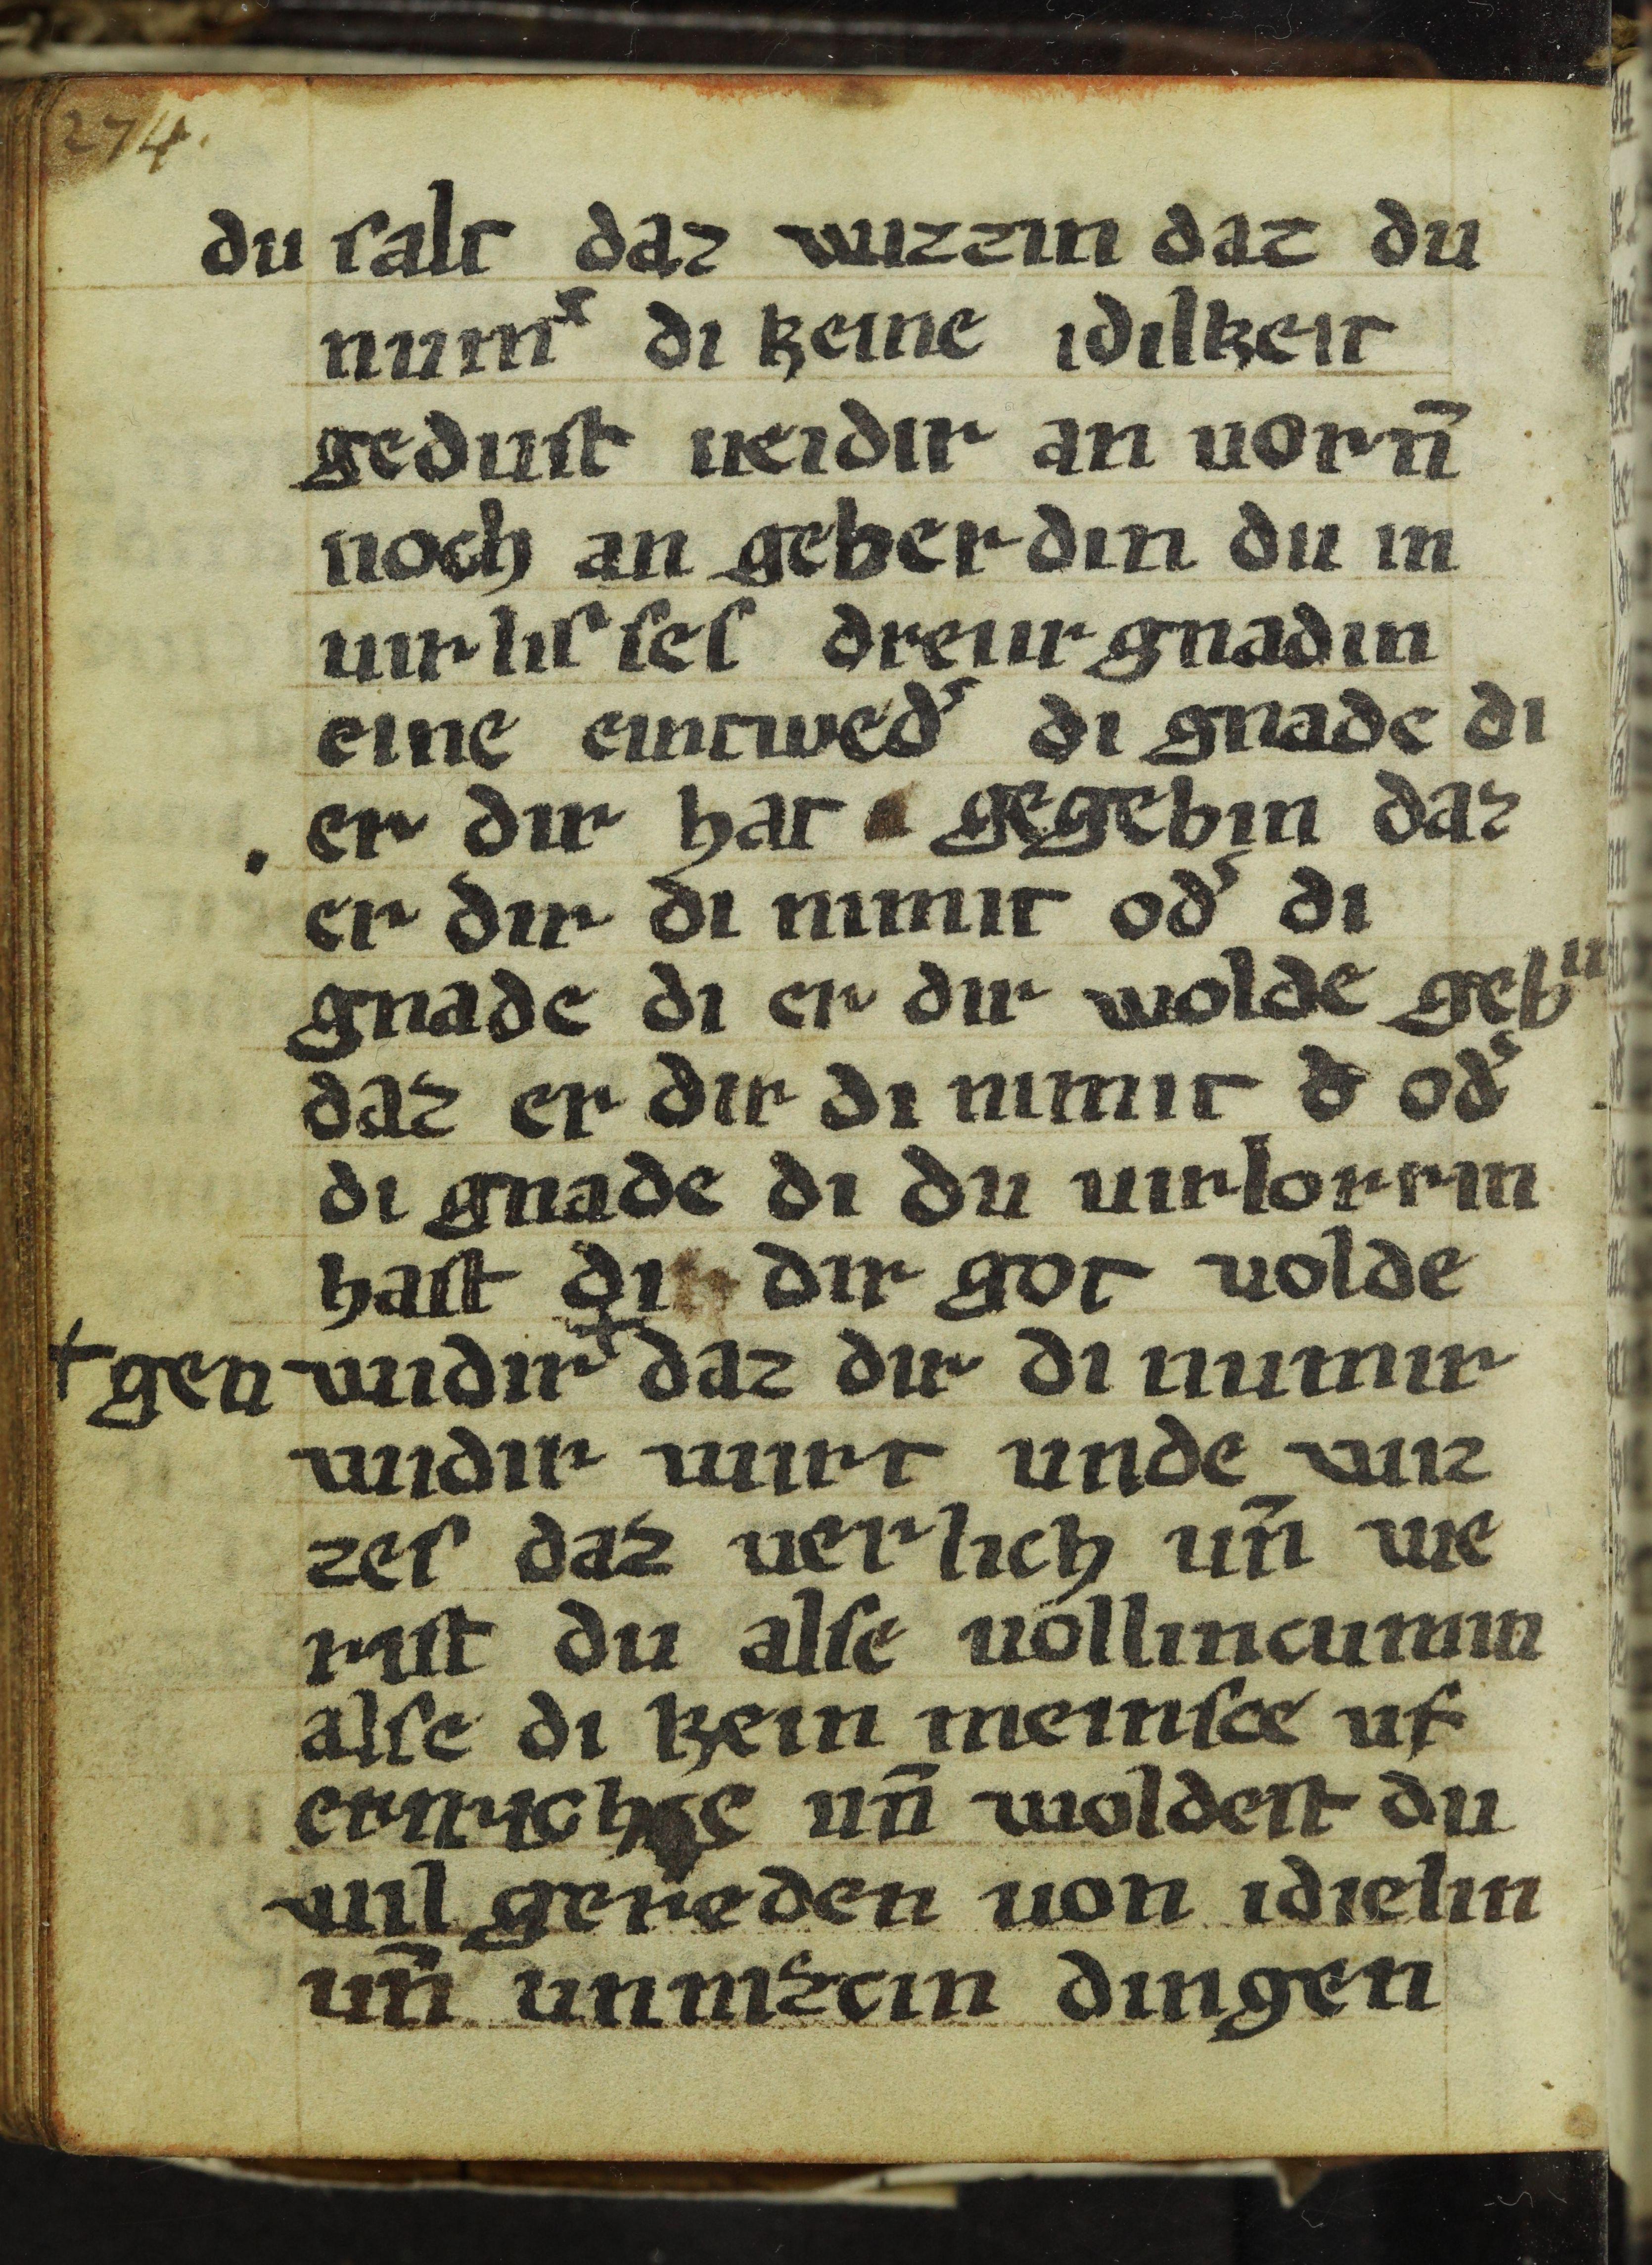 274.
du salt daz wizzin daz du
num͛ di keine idilkeit
gedust weidir an vorn̄
noch an geberdin du in
uirlisses dreiir gnadin
eine eintwed͛ di gnade di
er dir hat gegebin daz
er dir di nimit od͛ di
gnade di er dir wolde gebin
daz er dir di nimit d od͛
di gnade di du uirlorrin
hast di dir got uolde
+ gen widir + daz dir di nummir
widir wirt unde wiz
zes daz uerlich un̄ we
rist du alse uollincumin
alse di kein meinsce uf
ertrichse un̄ woldest du
wil gereden uon idielin
un̄ unnizcin dingen